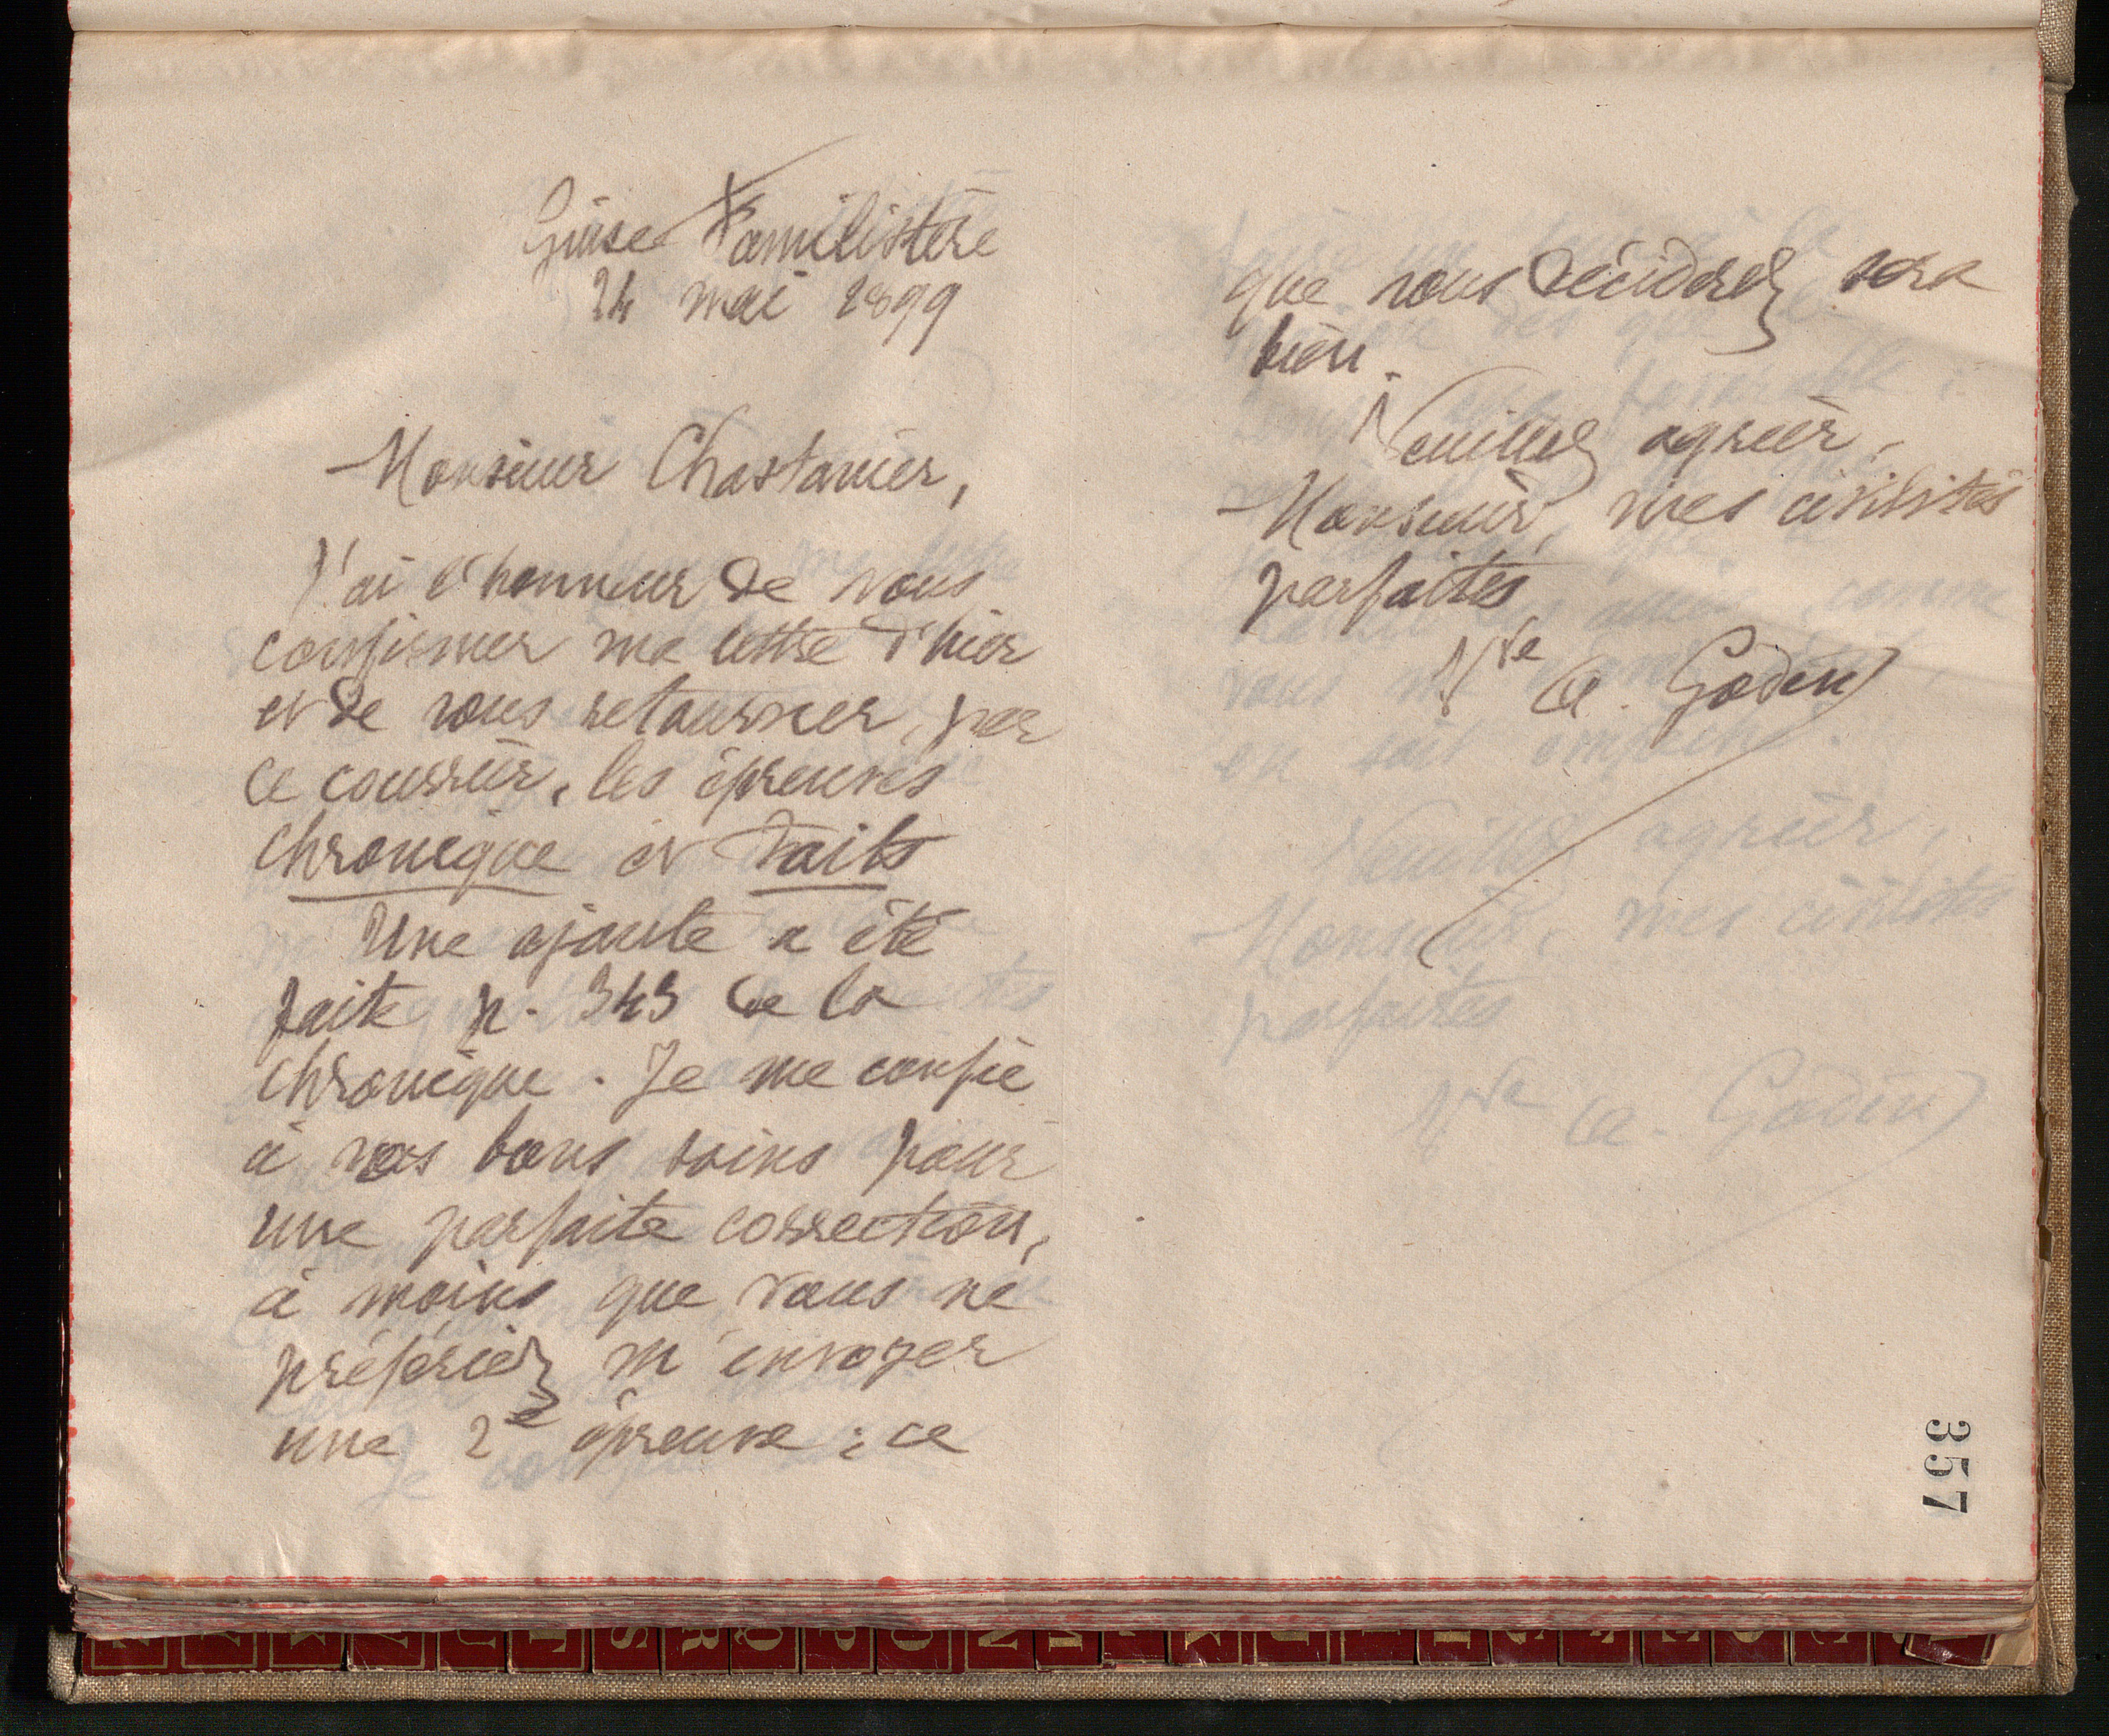 Guise Familistère
24 mai 1899
Monsieur Chastanier,
J'ai l'honneur de vous
confirmer ma lettre d'hier
et de vous retourner, par
ce courrier, les épreuves
chronique et Faits
Une ajoute a été
faite p. 343 de la
chronique. Je me confie
à vos bons soins pour
une parfaite correction,
à moins que vous ne
préfériez m'envoyer
une 2e épreuve ; ce
que vous déciderez sera
bien.
Veuillez agréer,
Monsieur, mes civilités
parfaites
Vve A. Godin
Veuillez agréer,
Monsieur, mes civilités
parfaites
Vve A. Godin
357
Z
Y
X
V
U
T
S
R
Q
P
O
N
M